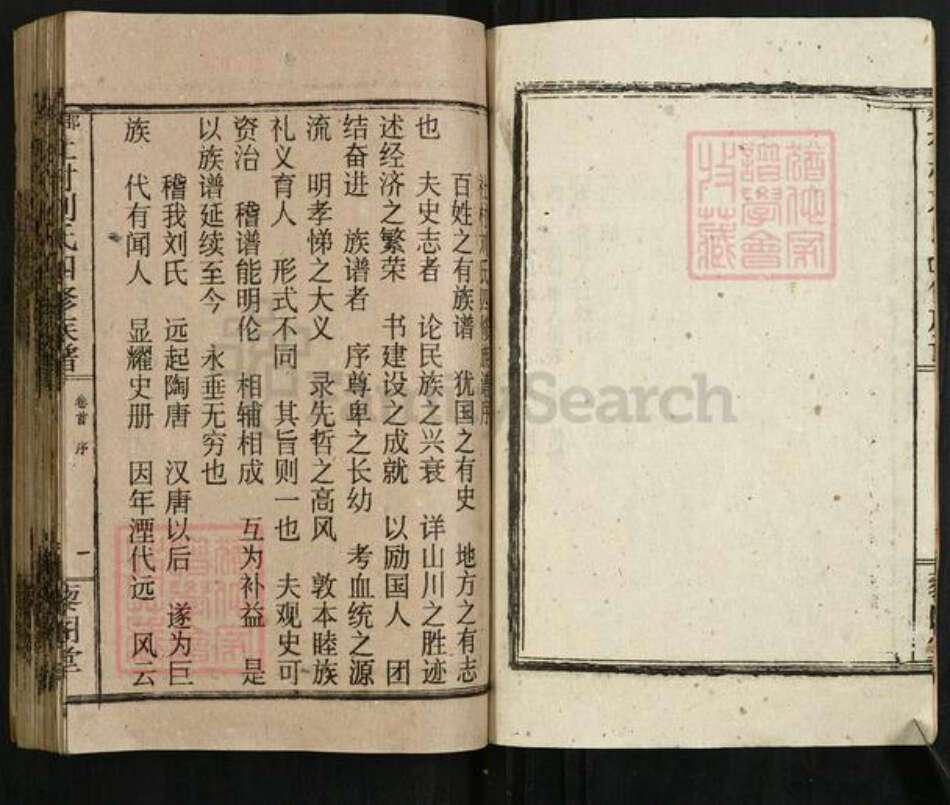 百姓之有族谱 犹国之有史 地方之有志
也 夫史志者 论民族之兴衰 详山川之胜迹
述经济之繁荣 书建设之成就 以励国人 团
结奋进 族谱者 序尊卑之长幼 考血统之源
流 明孝悌之大义 录先哲之高风 敦本睦族
礼义育人 形式不同 其旨则一也 夫观史可
资治 稽谱能明伦 相辅相成 互为补益 是
以族谱延续至今 永垂无穷也
稽我刘氏 远起陶唐 汉唐以后 遂为巨
族 代有闻人 显耀史册 因年湮代远 风云
刘氏四修族谱
卷首 序
一
藜阁堂
Search